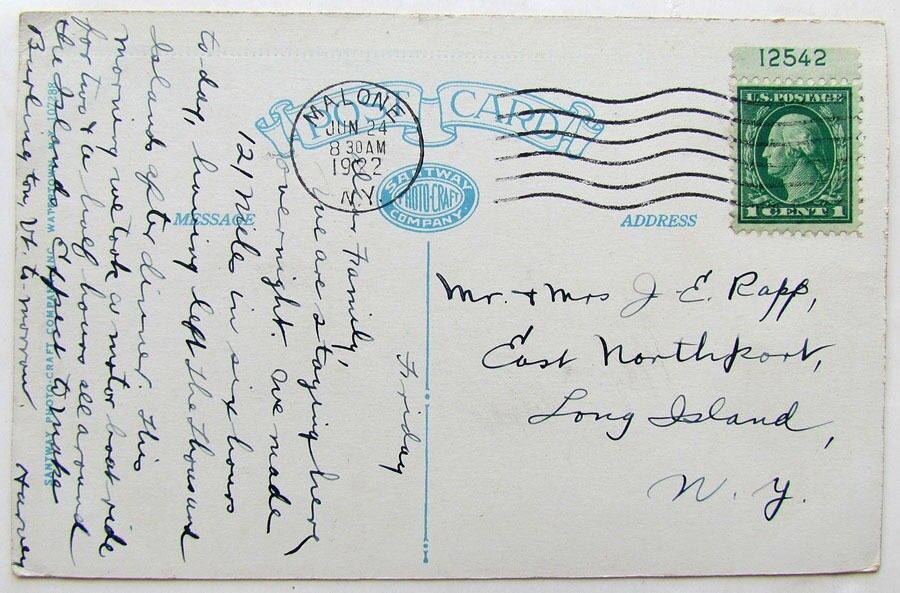 12542
U.S. POSTAGE
1 CENT 1
POST CARD
MALONE
JUN 24
8 30 AM
1922
N.Y.
SANTWAY
PHOTO-CRAFT
COMPANY
MESSAGE
ADDRESS
Mr. & Mrs J. E. Rapp,
East Northport,
Long Island,
N. Y.
Friday
Dear Family,
We are staying here
overnight. We made
121 Mile in six hours
to-day, having left the Thousand
Islands after dinner. This
morning we took a motor boat ride
for two & a half hours all around
the Islands. Expect to make
Burlington, Vt. to-morrow.
Harvey
SANTWAY PHOTO-CRAFT COMPANY, INC. WATERTOWN, N.Y.